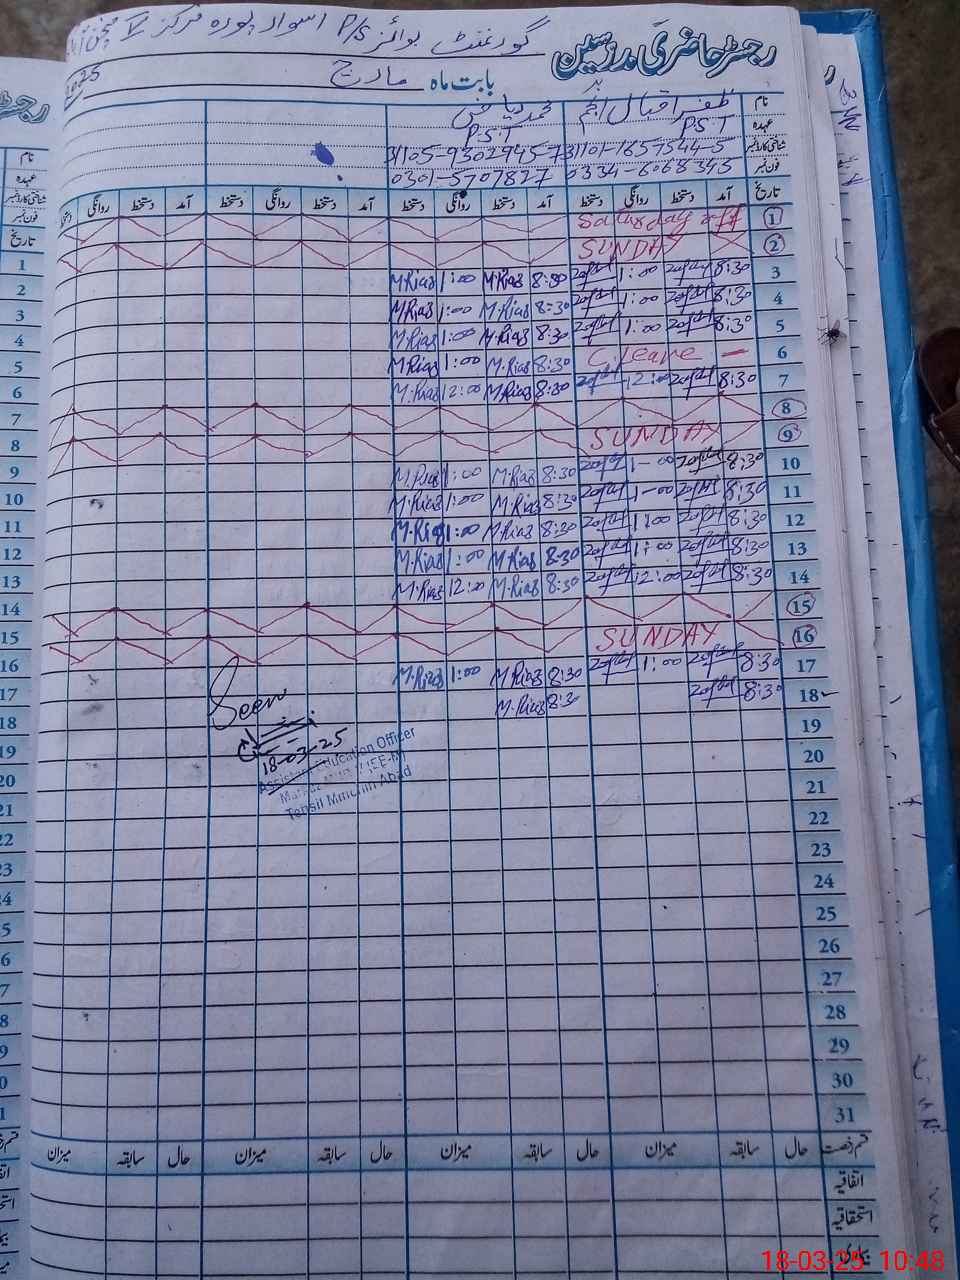 رجسٹر حاضری مدرسین گورنمنٹ بوائز P/S اسوار پورہ مرکز
بابت ماہ مارچ 2025
نام ظفر اقبال انجم محمد ریاض
عہدہ P.S.T P.S.T
شناختی کارڈ نمبر 31101-1657544-5 31105-9302945-7
فون نمبر 0334-6068345 0301-5707827
تاریخ آمد دستخط روانگی دستخط آمد دستخط روانگی دستخط آمد دستخط روانگی دستخط آمد دستخط روانگی دستخط
1 Saturday off
2 SUNDAY
3 8:30 1:00 8:30 M.Riaz 1:00 M.Riaz
4 8:30 1:00 8:30 M.Riaz 1:00 M.Riaz
5 8:30 1:00 8:30 M.Riaz 1:00 M.Riaz
6 C.leave 8:30 M.Riaz 1:00 M.Riaz
7 8:30 12:00 8:30 M.Riaz 12:00 M.Riaz
8
9 SUNDAY
10 8:30 1-00 8:30 M.Riaz 1:00 M.Riaz
11 8:30 1-00 8:30 M.Riaz 1:00 M.Riaz
12 8:30 1:00 8:30 M.Riaz 1:00 M.Riaz
13 8:30 1:00 8:30 M.Riaz 1:00 M.Riaz
14 8:30 12:00 8:30 M.Riaz 12:00 M.Riaz
15
16 SUNDAY
17 8:30 1:00 8:30 M.Riaz 1:00 M.Riaz
18 8:30 8:30 M.Riaz
Seen
18-03-25
Assistant Education Officer
(EE-M)
Tehsil Minchin Abad
19
20
21
22
23
24
25
26
27
28
29
30
31
قسم رخصت حال سابقہ میزان حال سابقہ میزان حال سابقہ میزان حال سابقہ میزان
اتفاقیہ
استحقاقیہ
بیماری
18-03-25 10:48